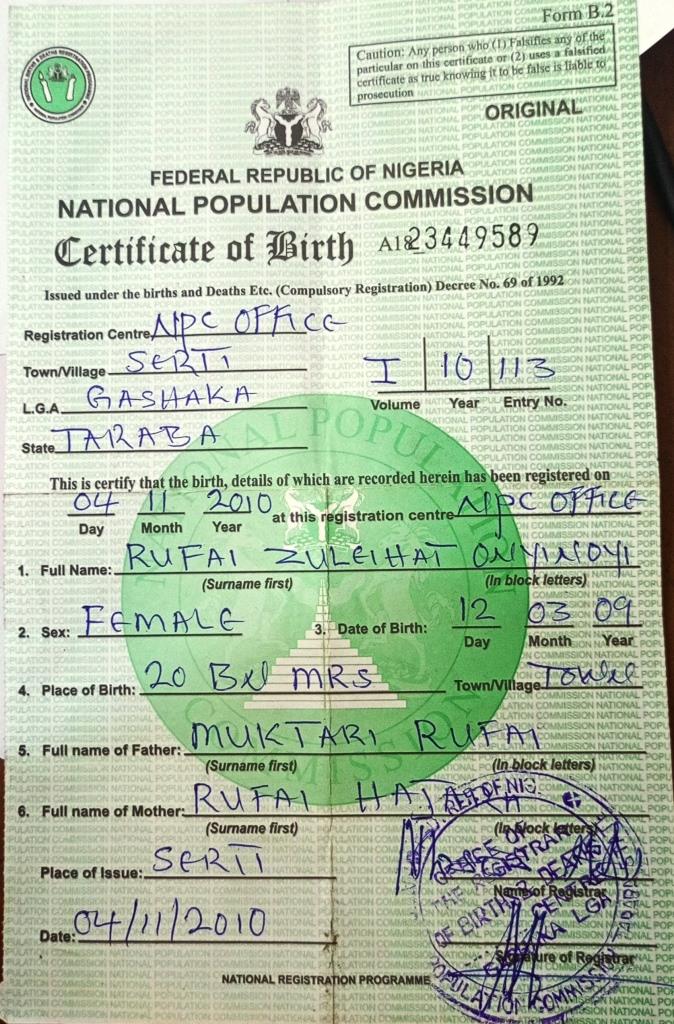 Form B.2
Caution: Any person who (1) Falsifies any of the
particular on this certificate or (2) uses a falsified
certificate as true knowing it to be false is liable to
prosecution
ORIGINAL
FEDERAL REPUBLIC OF NIGERIA
NATIONAL POPULATION COMMISSION
Certificate of Birth A18 23449589
Issued under the births and Deaths Etc. (Compulsory Registration) Decree No. 69 of 1992
Registration Centre NPC OFFICE
Town/Village SERTI
L.G.A. GASHAKA
State TARABA
I 10 113
Volume Year Entry No.
This is certify that the birth, details of which are recorded herein has been registered on
04 11 2010 at this registration centre NPC OFFICE
Day Month Year
1. Full Name: RUFAI ZULEIHAT ONYINOYI
(Surname first) (In block letters)
2. Sex: FEMALE 3. Date of Birth: 12 03 09
Day Month Year
4. Place of Birth: 20 MRS Town/Village
5. Full name of Father: MUKTARI RUFAI
(Surname first) (In block letters)
6. Full name of Mother: RUFAI
(Surname first) (In block letters)
Place of Issue: SERTI
Name of Registrar
Date: 04/11/2010
Signature of Registrar
NATIONAL REGISTRATION PROGRAMME
OFFICE OF
THE REGISTRAR
OF BIRTHS DEATHS
LGA
POPULATION COMMISSION